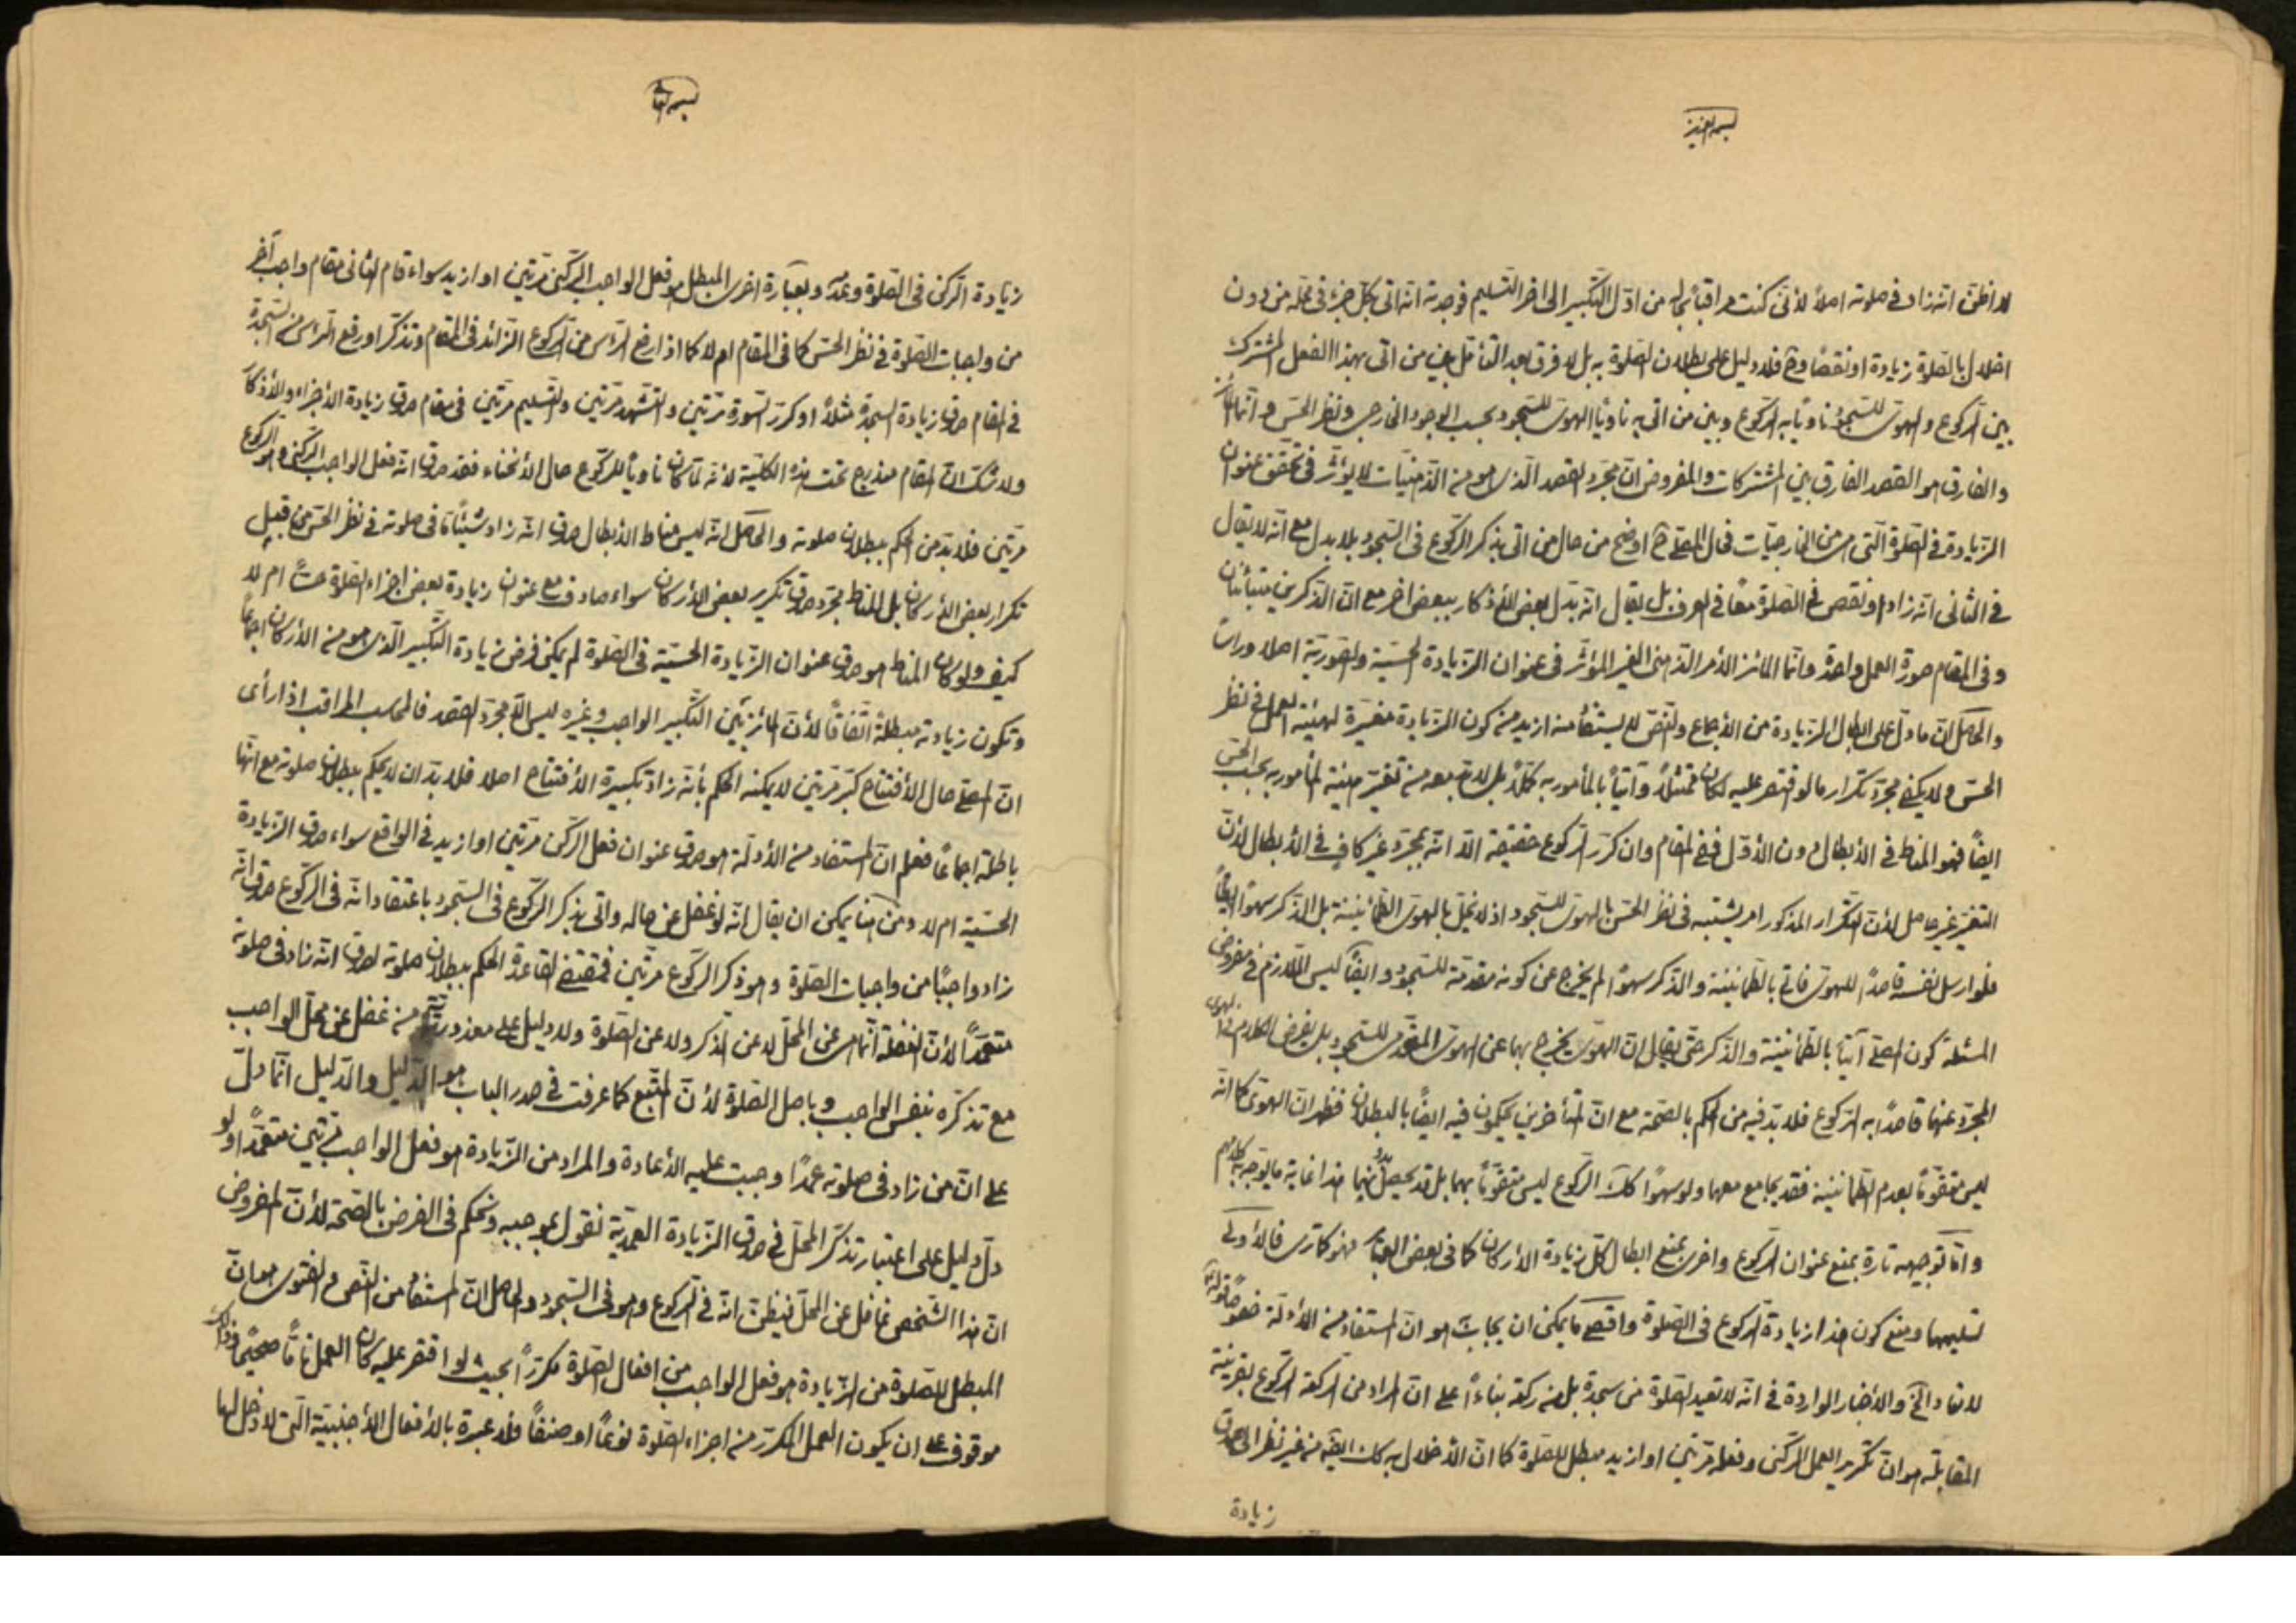 بسمه العزيز
لا اظن انه زاد في صلوته اصلا لأنى كنت مراقبا بحاله من اول التكبير الى اخر التسليم فوجدته انه اتى بكل جزء في محله من دون
اخلال بالصلوة زيادة او نقصا وح فلا دليل على بطلان الصلوة به بل لا فرق بعد التأمل بين من اتى بهذا الفعل المشترك
بين الركوع والهوى للسجود ناويا به الركوع وبين من اتى به ناويا الهوى للسجود بحسب الوجود الخارجى ونظر الحس
والفارق هو القصد الفارق بين المشتركات والمفروض ان مجرد القصد الذى هو من الذهنيات لا يؤثر في تحقق عنوان
الزيادة في الصلوة التى هى من الخارجيات فحال المصلى ح اوضح من حال من اتى بذكر الركوع فى السجود بلا بدل مع انه لا يقال
في الثانى انه زاد او نقص في الصلوة معا في العرف بل يقال انه بدل بعض الأذكار ببعض اخر مع ان الذكرين متباينان
وفى المقام صورة العمل واحدة وانما المائز الأمر الذهنى الغير المؤثر فى عنوان الزيادة الحسية والصورية اصلا وراسا
والحاصل ان ما دل على ابطال الزيادة من الأجماع والنص لا يستفاد منه ازيد من كون الزيادة مغيرة لهيئة العمل في نظر
الحس ولا يكفى مجرد تكرار ما لو اقتصر عليه لكان ممتثلا وآتيا بالمأمور به بل لا بد معه من تغير هيئة المأمور به بحسب الحس
ايضا فهو المناط في الأبطال دون الأول ففى المقام وان كرر الركوع حقيقة الا انه بمجرده غير كاف في الأبطال لأن
التغير غير حاصل لأن التكرار المذكور امر يشتبه فى نظر الحس بالهوى للسجود اذ لا تخل بالهوى الطمأنينة بل الذكر سهوا ايضا
فلو ارسل نفسه قاصدا للهوى فاتى بالطمأنينة والذكر سهوا لم يخرج عن كونه مقدمة للسجود وايضا ليس اللازم في مفروض
المسئلة كون المصلى آتيا بالطمأنينة والذكر حتى يقال ان الهوى يخرج بهما عن الهوى المقدمى للسجود بل يفرض الكلام في الهوى
المجرد عنهما قاصدا به الركوع فلا بد فيه من الحكم بالصحة مع ان المتأخرين يحكمون فيه ايضا بالبطلان فظهر ان الهوى كما انه
ليس متقوما بعدم الطمأنينة فقد يجامع معهما ولو سهوا كك الركوع ليس متقوما بهما بل قد يحصل بدونهما هذا غاية ما يوجه به كلامهم
واما توجيهه تارة بمنع عنوان الركوع واخرى بمنع ابطال كل زيادة الأركان كما فى بعض العبائر فهو كما ترى فالأولى
تسليمهما ومنع كون هذا زيادة الركوع فى الصلوة واقصى ما يمكن ان يجاب هو ان المستفاد من الأدلة خصوصا قوله
لا تعاد الخ والأخبار الواردة فى انه لا تعيد الصلوة من سجدة بل من ركعة بناءا على ان المراد من الركعة الركوع بقرينة
المقابلة هو ان تكرير العمل الركنى وفعله مرتين او ازيد مبطل للصلوة كما ان الأخلال به كك ايضا من غير نظر الى صدق
زيادة
بسمه تعالى
زيادة الركن فى الصلوة وعدمه وبعبارة اخرى المبطل هو فعل الواجب الركنى مرتين او ازيد سواء قام الثانى مقام واجب آخر
من واجبات الصلوة في نظر الحس كما فى المقام ام لا كما اذا رفع الراس من الركوع الزائد فى المقام وتذكر او رفع الراس من السجدة
في المقام صدق زيادة السجدة مثلا او كرر السورة مرتين والتشهد مرتين والتسليم مرتين فى مقام صدق زيادة الأجزاء والأذكار
ولا شك ان المقام مندرج تحت هذه الكلية لأنه لما كان ناويا للركوع حال الأنحناء فقد صدق انه فعل الواجب الركنى وهو الركوع
مرتين فلا بد من الحكم ببطلان صلوته والحاصل انه ليس مناط الأبطال صدق انه زاد شيئا ما فى صلوته في نظر الحس من قبيل
تكرار بعض الأركان بل المناط مجرد صدق تكرير بعض الأركان سواء صادف مع عنوان زيادة بعض اجزاء الصلوة حسا ام لا
كيف ولو كان المناط هو صدق عنوان الزيادة الحسية فى الصلوة لم يمكن فرض زيادة التكبير الذى هو من الأركان اجماعا
وتكون زيادته مبطلة اتفاقا لأن المائز بين التكبير الواجب وغيره ليس الا مجرد القصد فالمحاسب المراقب اذا رأى
ان المصلى حال الأفتتاح كبر مرتين لا يمكنه الحكم بأنه زاد تكبيرة الأفتتاح اصلا فلا بد ان لا يحكم ببطلان صلوته مع انها
باطلة اجماعا فعلم ان المستفاد من الأدلة هو صدق عنوان فعل الركن مرتين او ازيد في الواقع سواء صدق الزيادة
الحسية ام لا ومن هنا يمكن ان يقال انه لو غفل عن حاله واتى بذكر الركوع فى السجود باعتقاد انه فى الركوع صدق انه
زاد واجبا من واجبات الصلوة وهو ذكر الركوع مرتين فمقتضى القاعدة الحكم ببطلان صلوته لصدق انه زاد فى صلوته
متعمدا لأن الغفلة انما هى عن المحل لا عن الذكر ولا عن الصلوة ولا دليل على معذورية من غفل عن محل الواجب
مع تذكره بنفس الواجب وباصل الصلوة لأن المتبع كما عرفت في صدر الباب هو الدليل والدليل انما دل
على ان من زاد فى صلوته عمدا وجبت عليه الأعادة والمراد من الزيادة هو فعل الواجب مرتين متعمدا ولو
دل دليل على اعتبار تذكر المحل في صدق الزيادة العمدية نقول بموجبه ونحكم فى الفرض بالصحة لأن المفروض
ان هذا الشخص غافل عن المحل فيظن انه في الركوع وهو فى السجود والحاصل ان المستفاد من النص والفتوى هو ان
المبطل للصلوة من الزيادة هو فعل الواجب من افعال الصلوة مكررا بحيث لو اقتصر عليه كان العمل تاما صحيحا وذلك
موقوف على ان يكون العمل المكرر من اجزاء الصلوة نوعا او صنفا فلا عبرة بالأفعال الأجنبية التى لا دخل لها